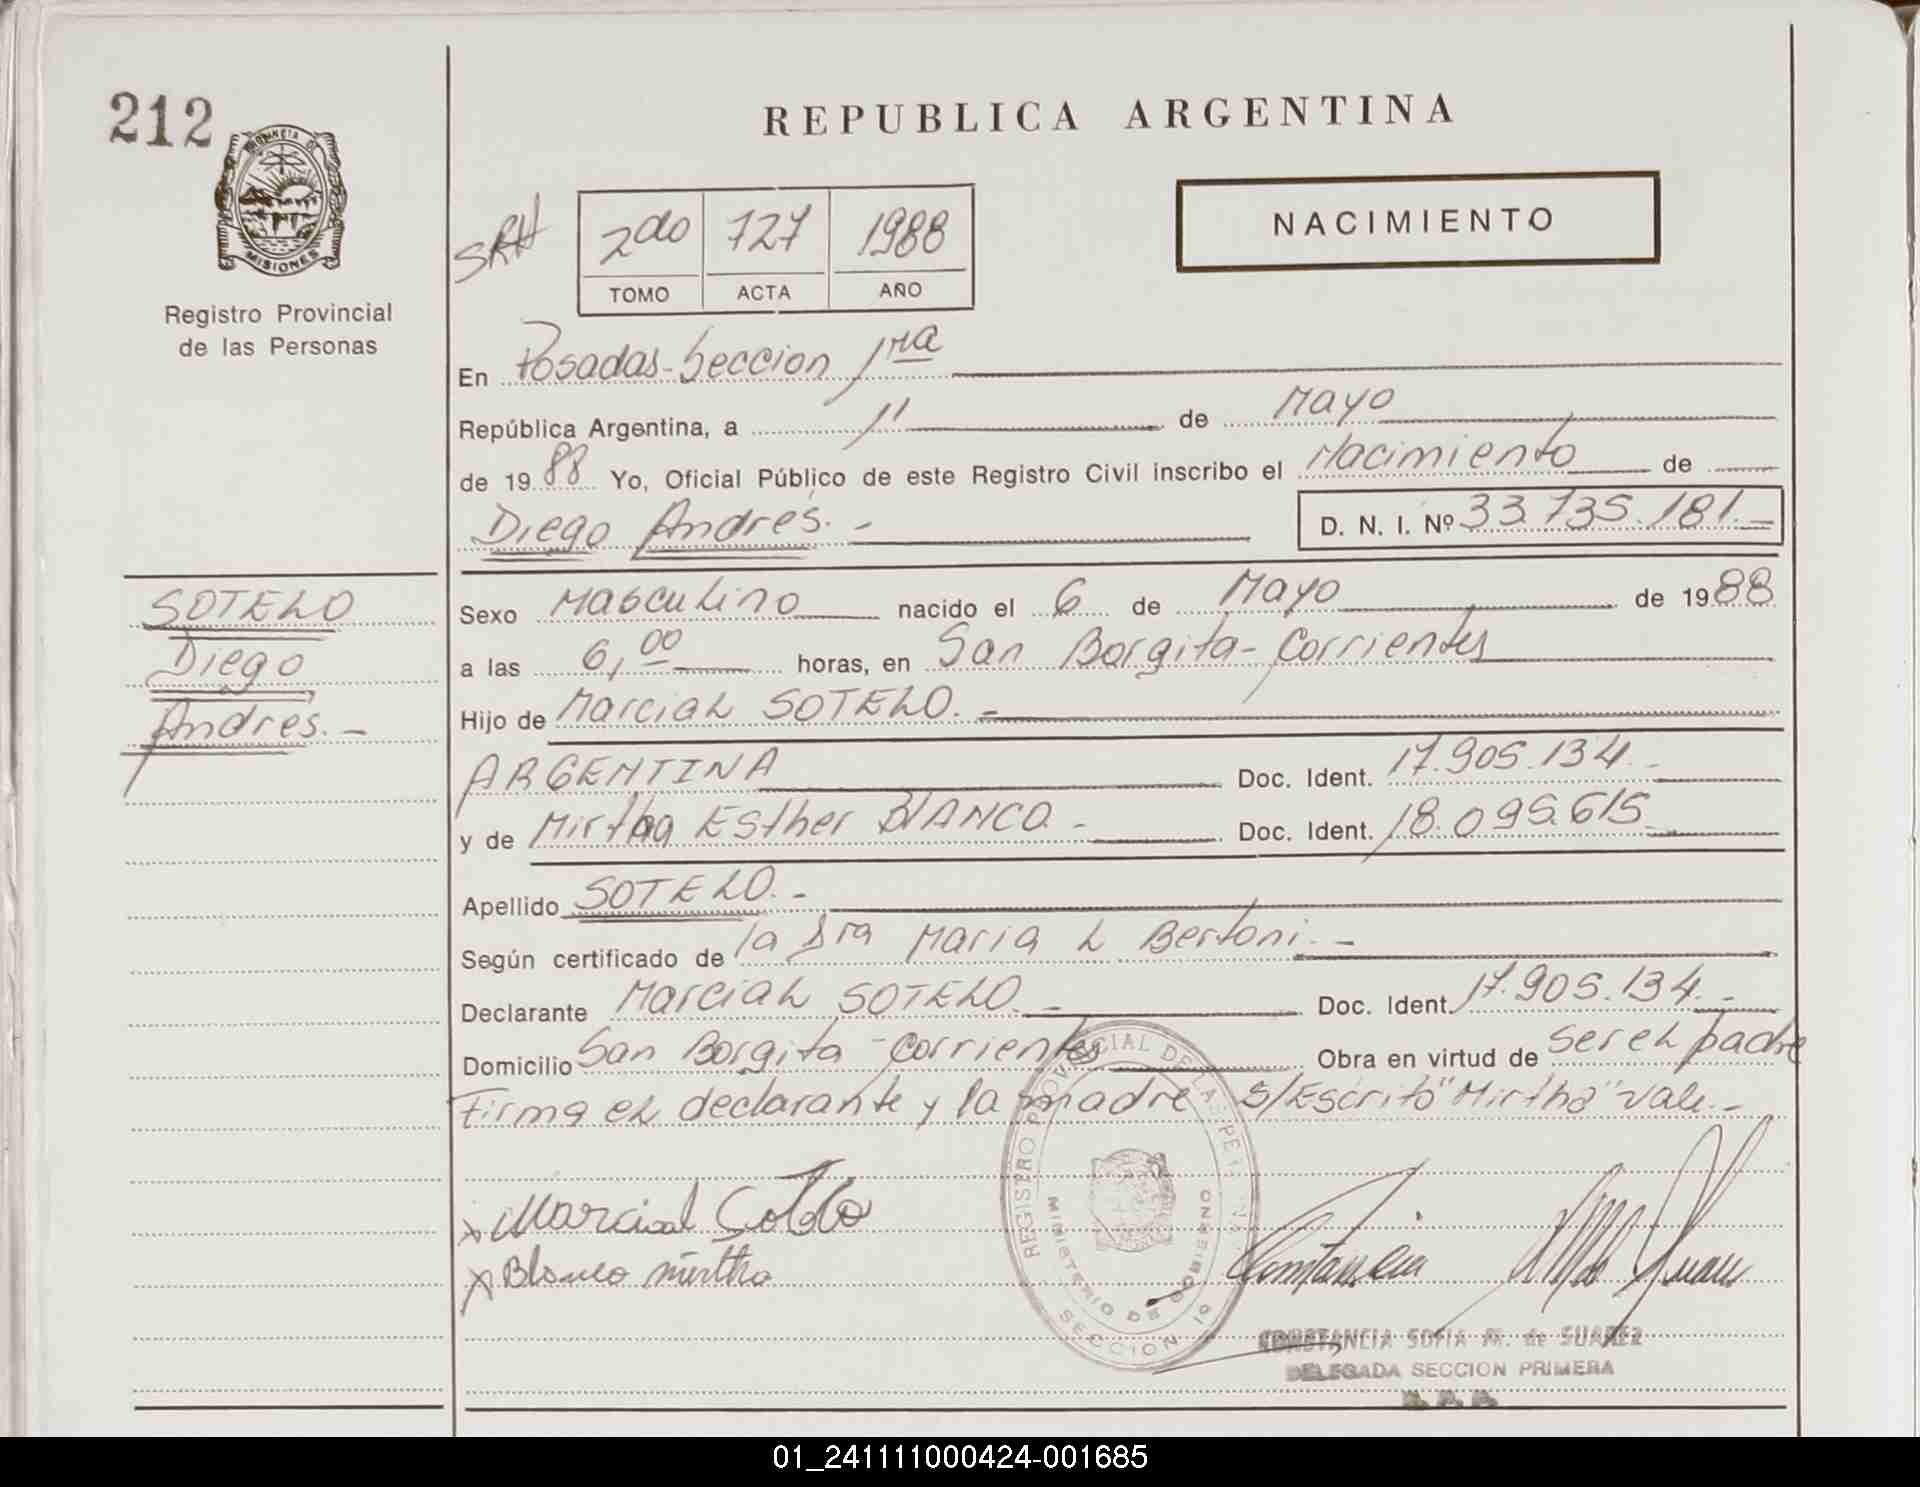 212
PROVINCIA DE
MISIONES
Registro Provincial
de las Personas
REPUBLICA ARGENTINA
SRH
2do 727 1988
TOMO ACTA AÑO
NACIMIENTO
En Posadas-Seccion 1ra
República Argentina, a 11 de Mayo
de 1988 Yo, Oficial Público de este Registro Civil inscribo el Nacimiento de
Diego Andres.-
D. N. I. Nº 33.735.181.-
SOTELO
Diego
Andres.-
Sexo Masculino nacido el 6 de Mayo de 1988
a las 6,00 horas, en San Borgita-Corrientes
Hijo de Marcial SOTELO.-
ARGENTINA Doc. Ident. 17.905.134.-
y de Mirtha Esther BLANCO.- Doc. Ident. 18.095.615
Apellido SOTELO.-
Según certificado de la Dra Maria L Bertoni.-
Declarante Marcial SOTELO.- Doc. Ident. 17.905.134.-
Domicilio San Borgita-Corrientes Obra en virtud de ser el padre
Firma el declarante y la madre S/Escrito "Mirtha" vale.-
x Marcial Sotelo
x Blanco mirtha
REGISTRO PROVINCIAL DE LAS PER
MINISTERIO DE GOBIERNO
SECCION 1º
CONSTANCIA SOFIA M. de SUAREZ
DELEGADA SECCION PRIMERA
01_241111000424-001685